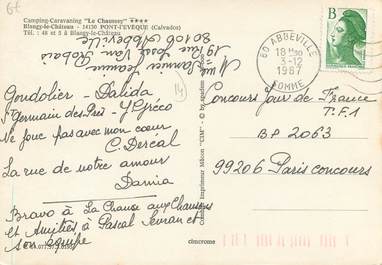 Camping-Caravaning "Le Chaussey" ★★★★
Blangy-le-Château - 14130 PONT-L'EVÊQUE (Calvados)
Tél. : 48 et 5 à Blangy-le-Château
Jeannine
80100 Abbeville
14
80 ABBEVILLE
18 H 30
3-12
1987
SOMME
B
Gondolier - Dalida
St Germain des Prés - J Gréco
Ne joue pas avec mon coeur
C. Deréal
La rue de notre amour
Damia
Bravo à La Chance aux Chansons
et Amitiés à Pascal Sevran et
son équipe
Concours Jour de France
T.F1
BP 2063
99206 Paris concours
cimcrome